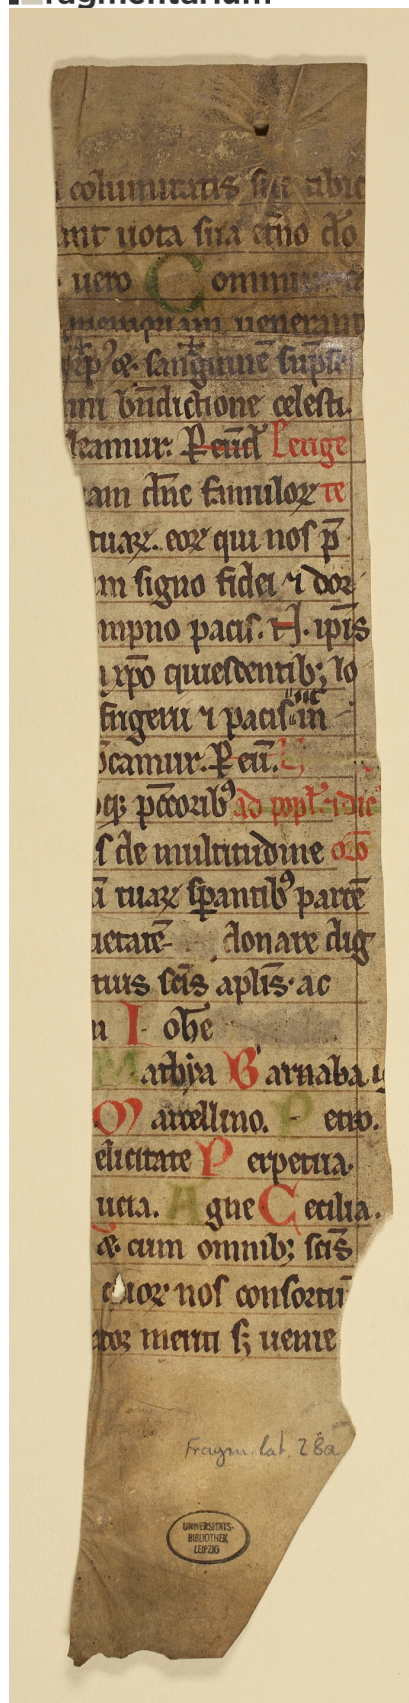 fragmentarium
columitatis sue tibiq
ant uota sua et̄no dō
uero Communica
memoriam uenerant
xp̄i ⁊ sanguinē sūpse
mni bn̄dictione celesti.
leamur. P eūd Perige
iam dn̄e famuloꝝ te
tuaꝝ. eoꝝ qui nos p̄
m signo fidei ⁊ dor
ompno pacis. N. ip̄is
xp̄o quiescentib; lo
frigerii ⁊ pacis in
ecamur. P eū.
oq; pccorib⁹ ad popl̄. ⁊ dic
s de multitudine
ū tuaꝝ sp̄antib⁹ partē
cietatē donare dig
tuis sc̄is apl̄is. ac
Iohe
Mathya Barnaba.
Marcellino. Petro.
elicitate Perpetua.
ucia. Agne Cecilia.
⁊ cum omnib; sc̄is
quoꝝ nos consortiū
ator meriti s; uenie
Fragm. lat. 28a
UNIVERSITÄTS-
BIBLIOTHEK
LEIPZIG